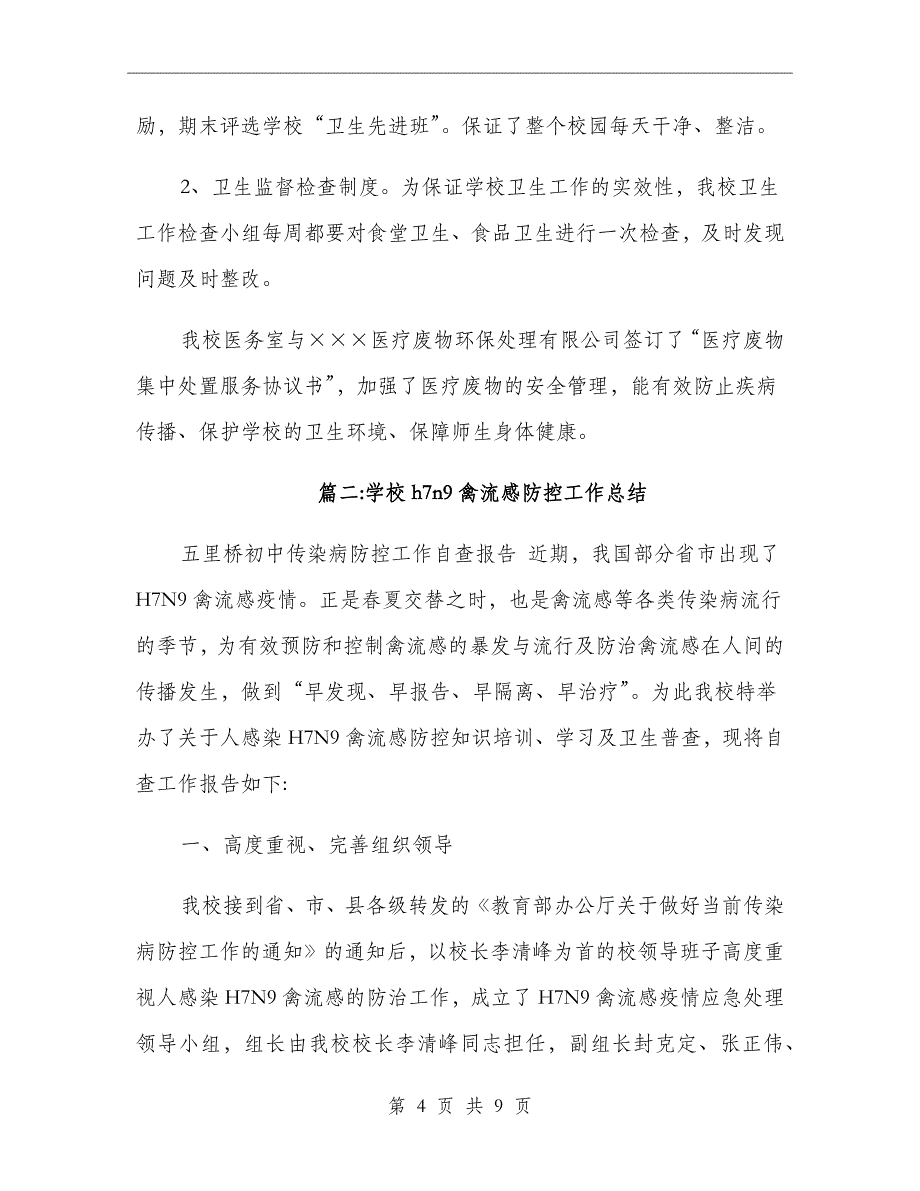 励，期末评选学校“卫生先进班”。保证了整个校园每天干净、整洁。
2、卫生监督检查制度。为保证学校卫生工作的实效性，我校卫生
工作检查小组每周都要对食堂卫生、食品卫生进行一次检查，及时发现
问题及时整改。
我校医务室与×××医疗废物环保处理有限公司签订了“医疗废物
集中处置服务协议书”，加强了医疗废物的安全管理，能有效防止疾病
传播、保护学校的卫生环境、保障师生身体健康。
篇二:学校 h7n9 禽流感防控工作总结
五里桥初中传染病防控工作自查报告 近期，我国部分省市出现了
H7N9 禽流感疫情。正是春夏交替之时，也是禽流感等各类传染病流行
的季节，为有效预防和控制禽流感的暴发与流行及防治禽流感在人间的
传播发生，做到“早发现、早报告、早隔离、早治疗”。为此我校特举
办了关于人感染 H7N9 禽流感防控知识培训、学习及卫生普查，现将自
查工作报告如下:
一、高度重视、完善组织领导
我校接到省、市、县各级转发的《教育部办公厅关于做好当前传染
病防控工作的通知》的通知后，以校长李清峰为首的校领导班子高度重
视人感染 H7N9 禽流感的防治工作，成立了 H7N9 禽流感疫情应急处理
领导小组，组长由我校校长李清峰同志担任，副组长封克定、张正伟、
第 4 页 共 9 页